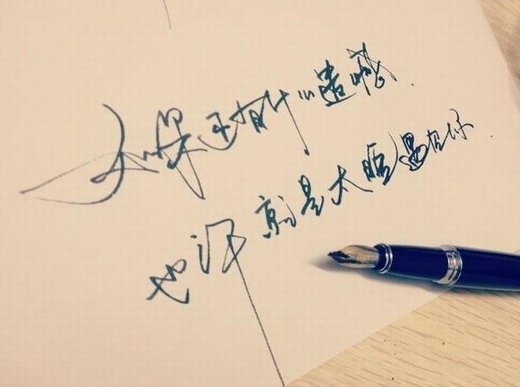 如果还有什么遗憾
也许就是太晚遇见你